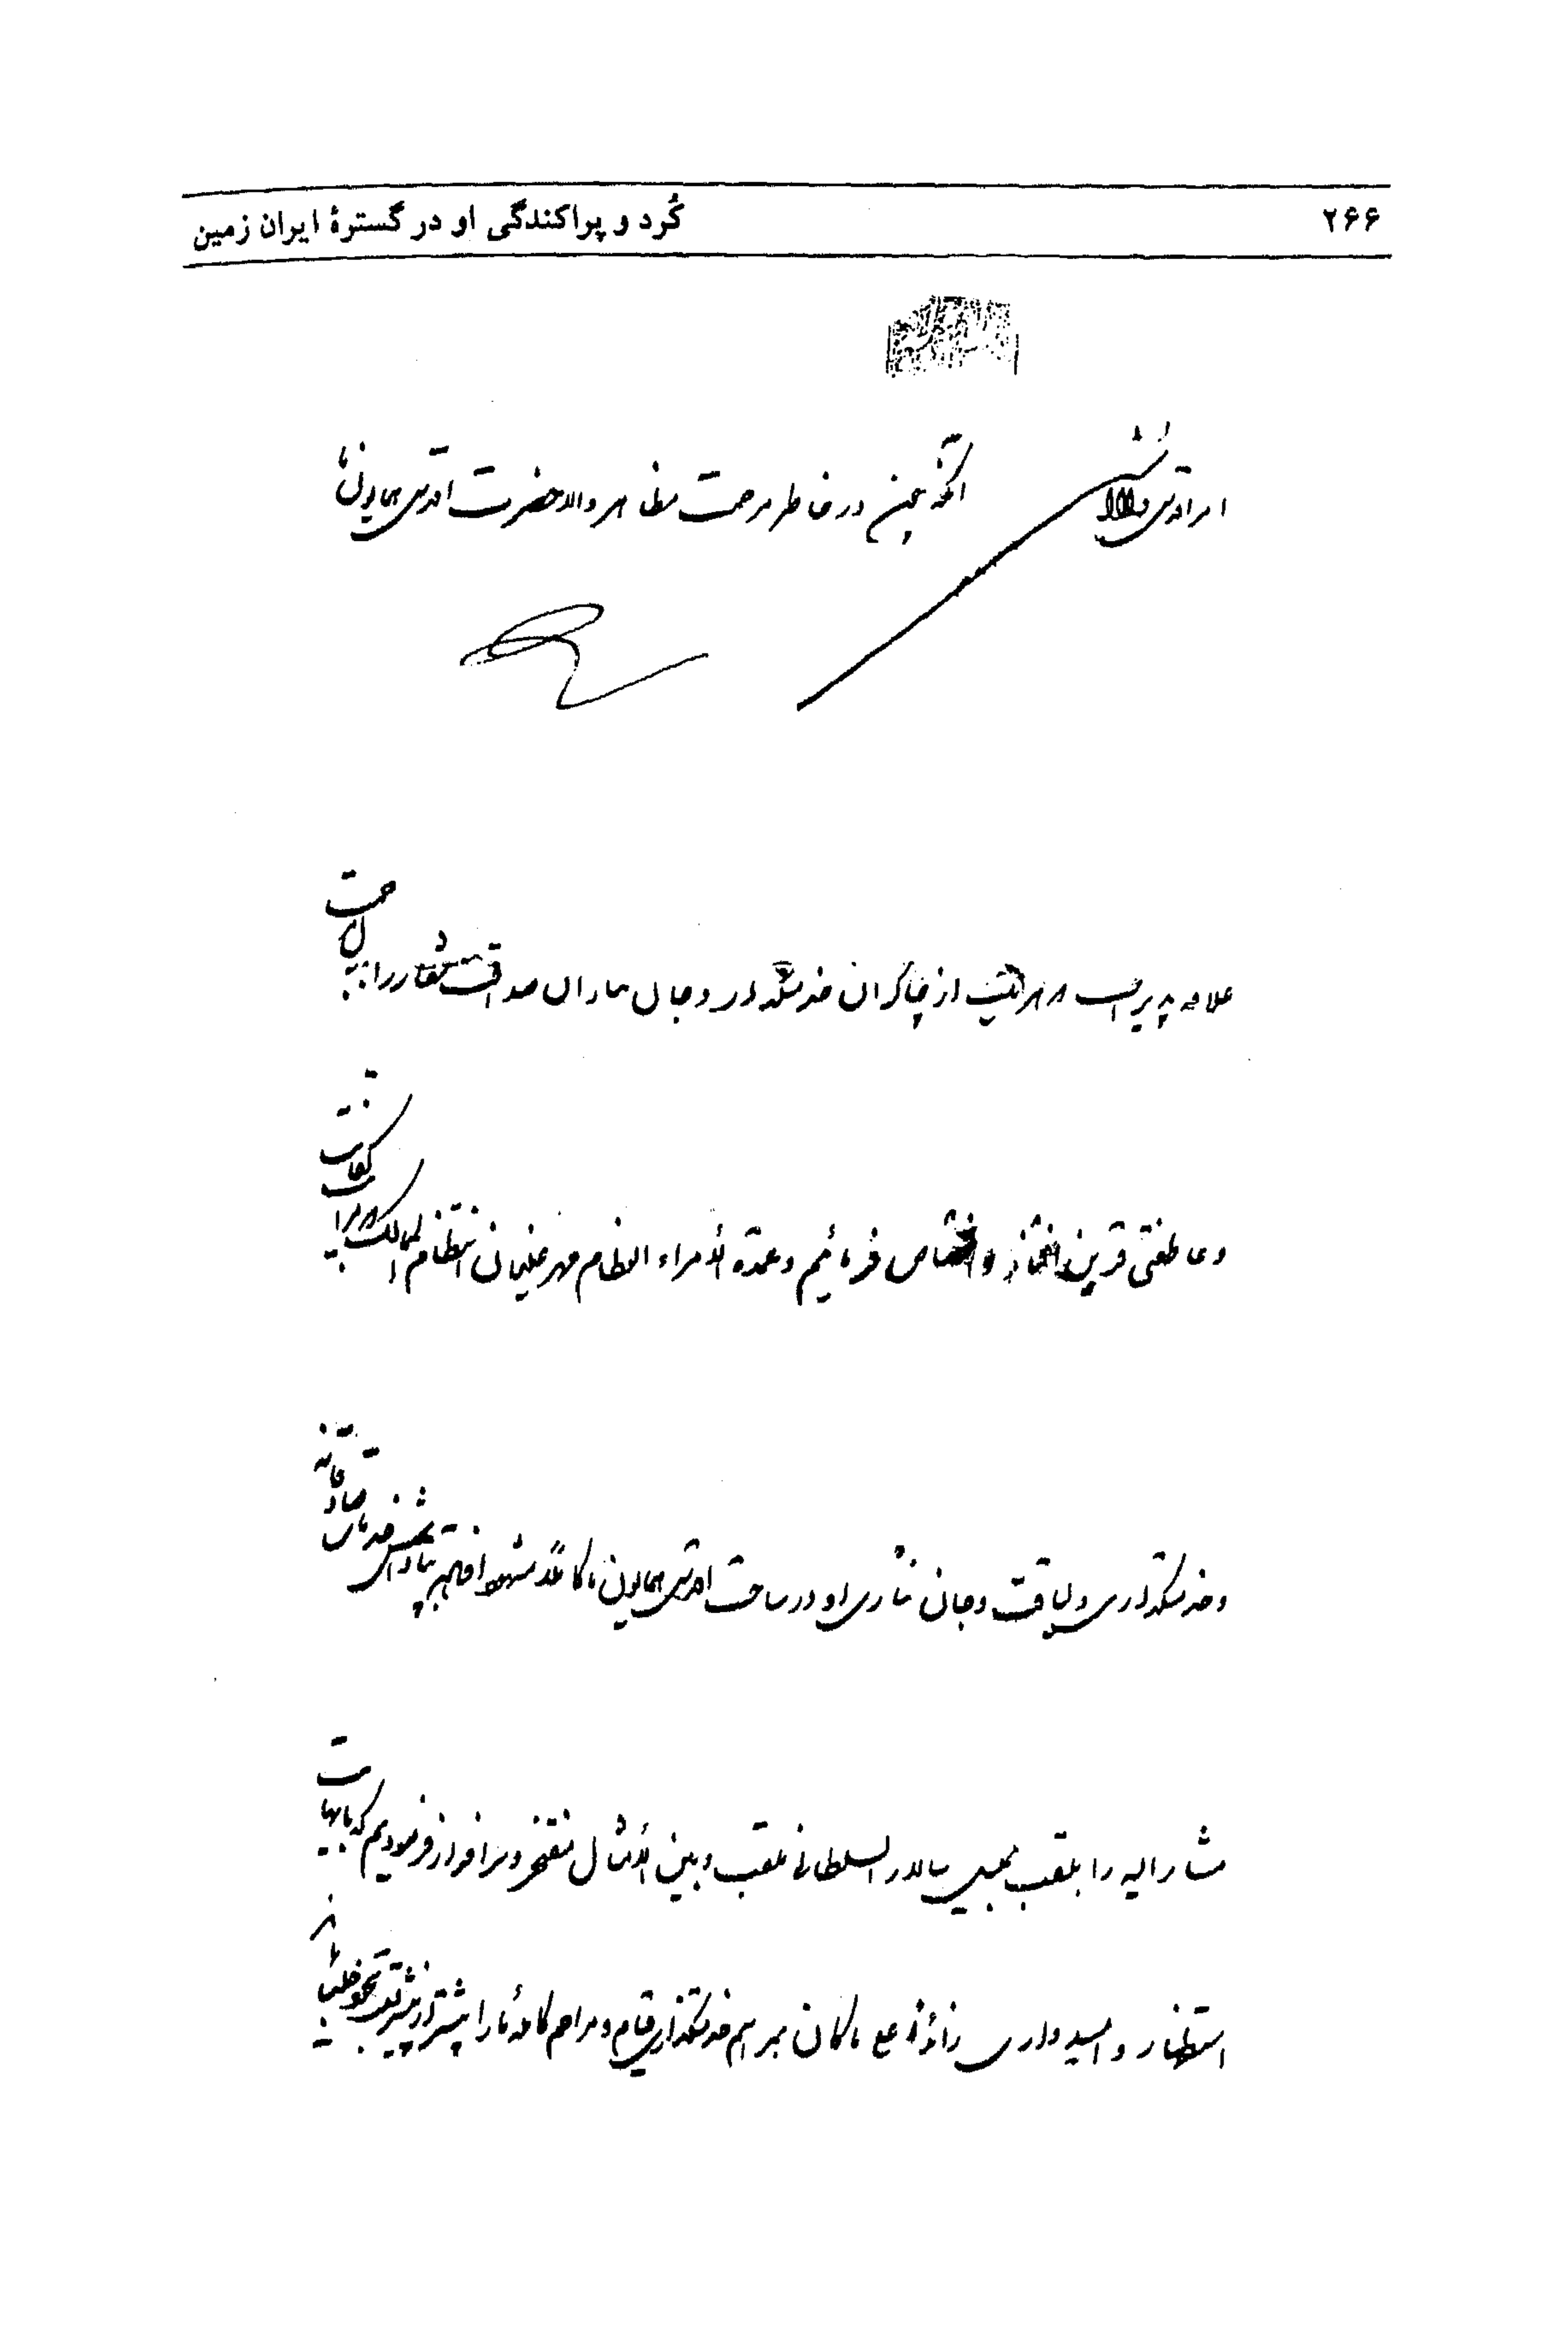 ۲۶۶
کُرد و پراکندگی او در گسترهٔ ایران زمین
امر اقدس والا شد
آنکه چون در خاطر مرحمت مظاهر والا حضرت اقدس همایونی ما
از چاکران خدمتگذار و جان نثاران صداقت شعار را
و عاطفتی قرین و اختصاص فرمائیم و عمدة الامراء العظام مهر علیخان انتظام الممالک
و خدمتگذاری و لیاقت و جان نثاری او در ساحت اقدس همایون ما کاملاً مشهود افتاده پاداش خدمات صادقانه
مشارالیه را بلقب سالار السلطانی ملقب و بین الامثال مفتخر و سرافراز فرمودیم که با نهایت
استظهار و امیدواری زائداً علی ماکان بمراسم خدمتگذاری قیام و مراحم کامله ما را بیشتر از پیشتر بخود جلب نماید